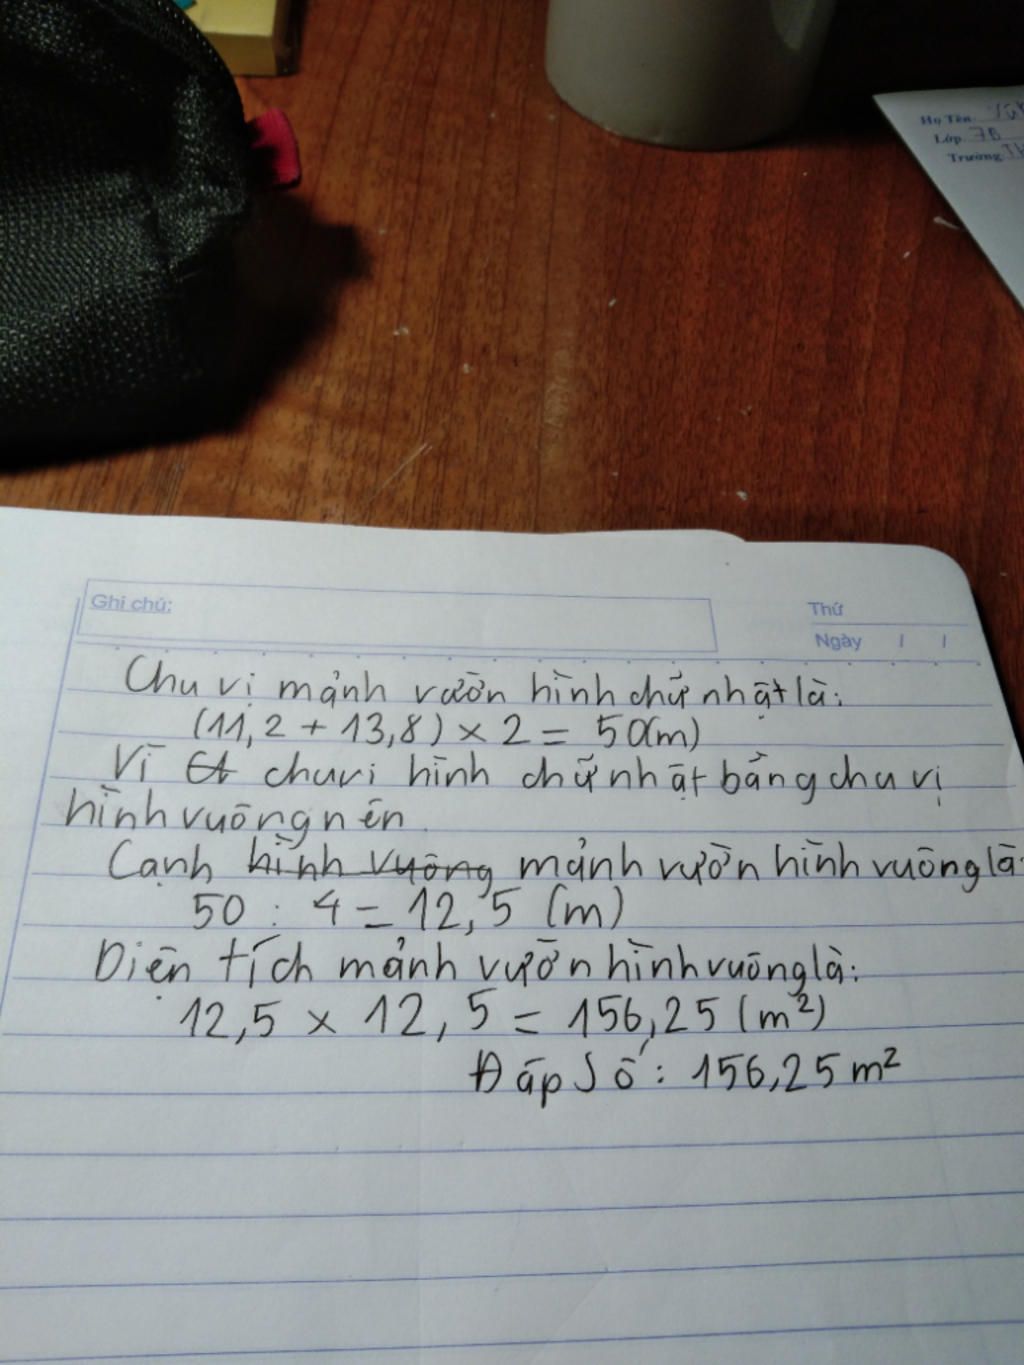 Họ Tên
Lớp 7B
Trường
Ghi chú:
Thứ
Ngày / /
Chu vi mảnh vườn hình chữ nhật là:
(11,2 + 13,8) × 2 = 50(m)
Vì chu vi hình chữ nhật bằng chu vi
hình vuông nên
Cạnh hình vuông mảnh vườn hình vuông là
50 : 4 = 12,5 (m)
Diện tích mảnh vườn hình vuông là:
12,5 × 12,5 = 156,25 (m²)
Đáp Số: 156,25 m²